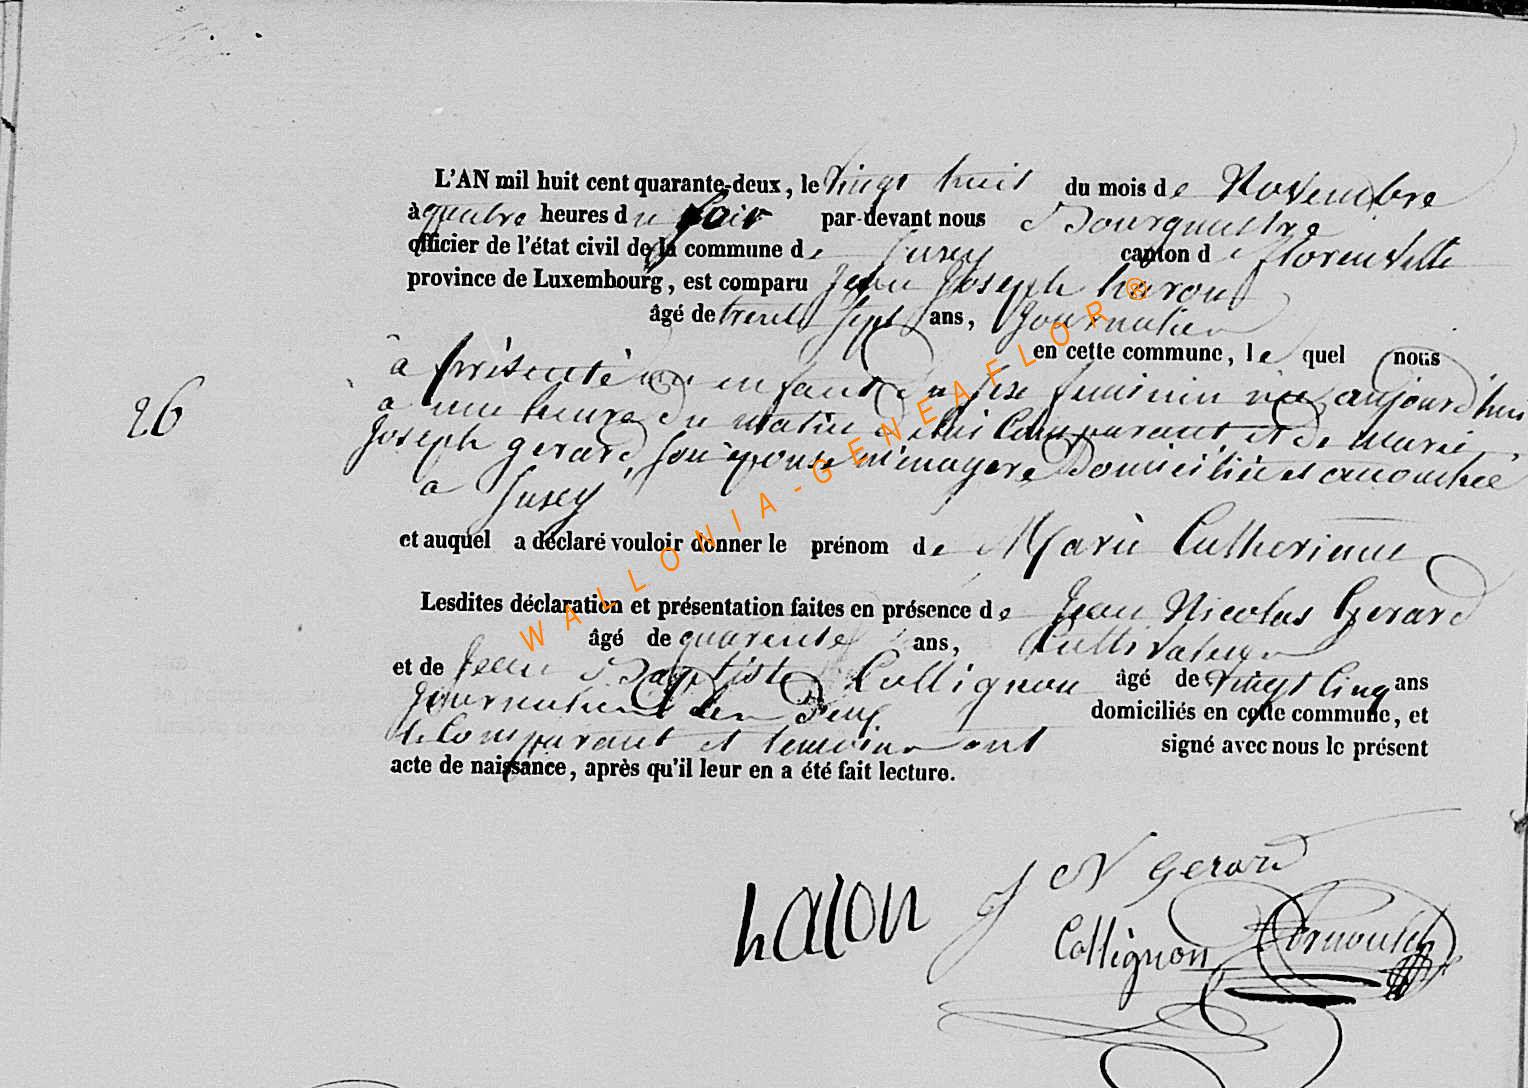 L'AN mil huit cent quarante-deux, le vingt huit du mois de Novembre
à quatre heures du soir par-devant nous
officier de l'état civil de la commune de Susey canton de florenville
province de Luxembourg, est comparu Jean Joseph haron
âgé de trente sept ans, Journalier
en cette commune, le quel nous
à présenté un enfant du sexe feminin née aujourdhui
a une heure du matin de lui Comparant, et de marie
Joseph gerard, son épouse ménagere Domiciliée et accouchée
a Susey
26
et auquel a déclaré vouloir donner le prénom de Marie Catherinne
Lesdites déclaration et présentation faites en présence de Jean Nicolas Gerard
âgé de quarente ans, Cultivateur
et de Jean Baptiste Collignon âgé de vingt cinq ans
Journalier deux domiciliés en cette commune, et
le Comparant et temoins ont signé avec nous le présent
acte de naissance, après qu'il leur en a été fait lecture.
J N Gerard
haron
Collignon
WALLONIA-GENEAFLOR®